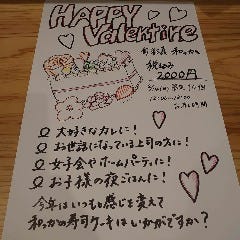 HAPPY
Valentine
税込み
2000円
大好きなカレに！
お世話になっている上司の方に！
女子会やホームパーティに！
お子様の夜ごはんに！
今年はいつもと感じを変えて
和っかの寿司ケーキはいかがですか？